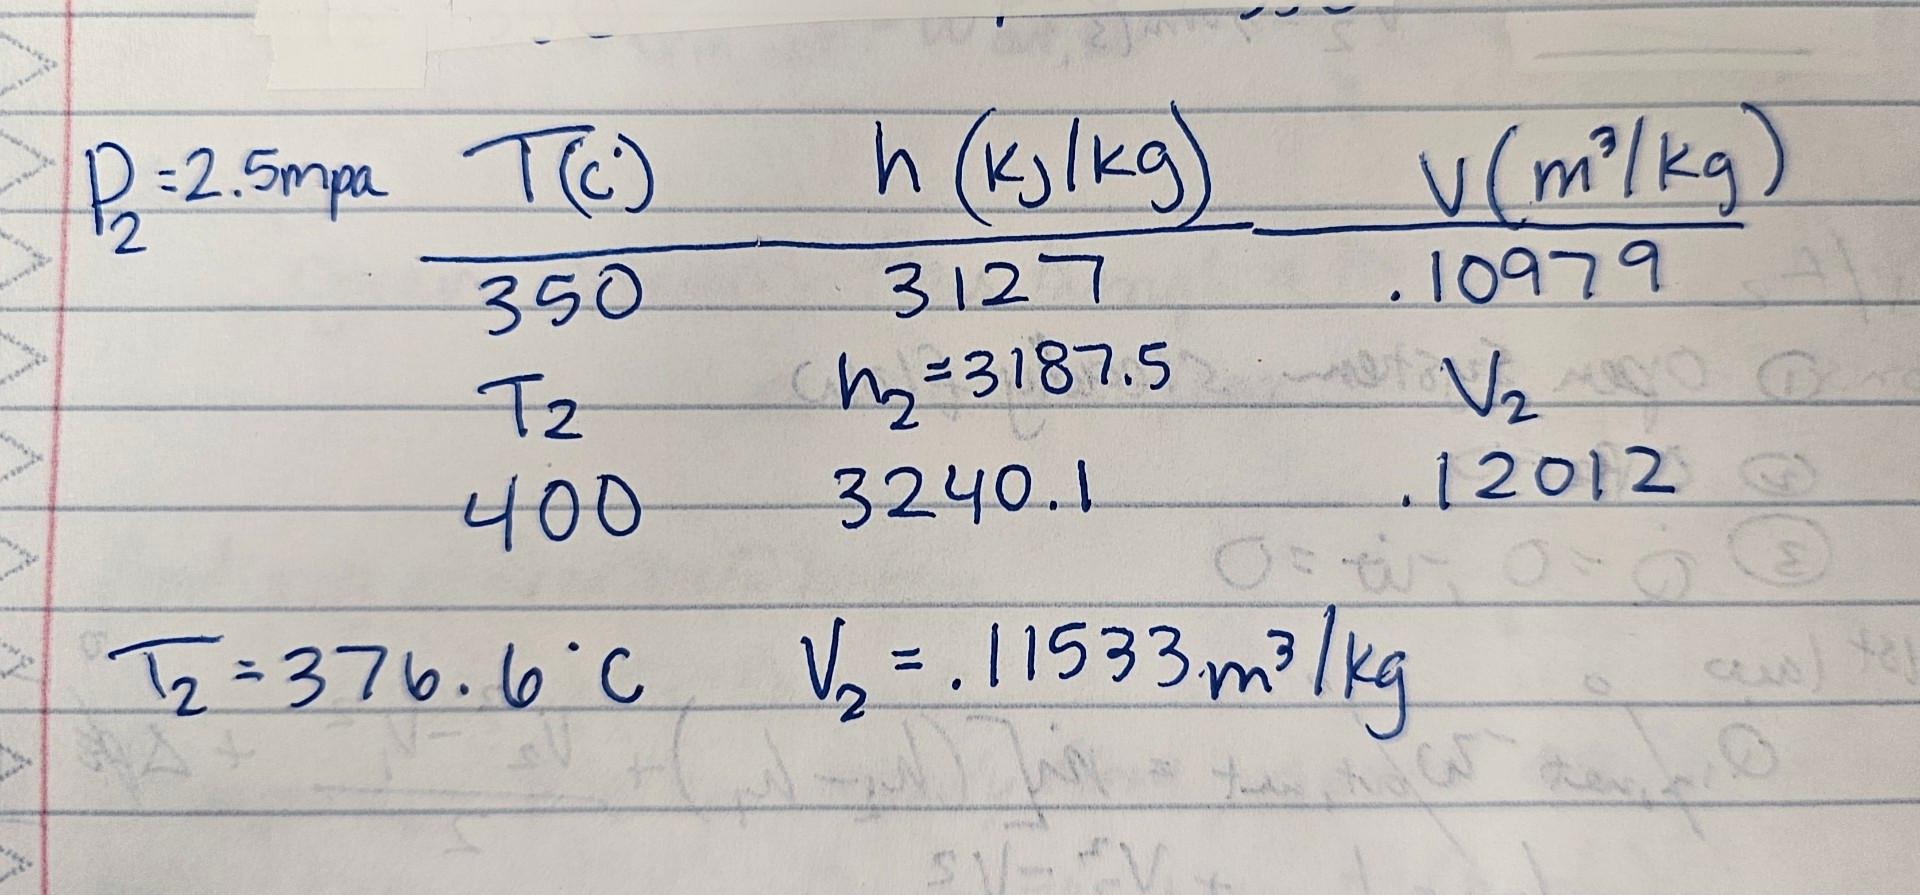 P₂=2.5mpa T(c°) h (kj/kg) V(m³/kg)
350 3127 .10979
T₂ h₂=3187.5 V₂
400 3240.1 .12012
T₂=376.6°C V₂=.11533m³/kg